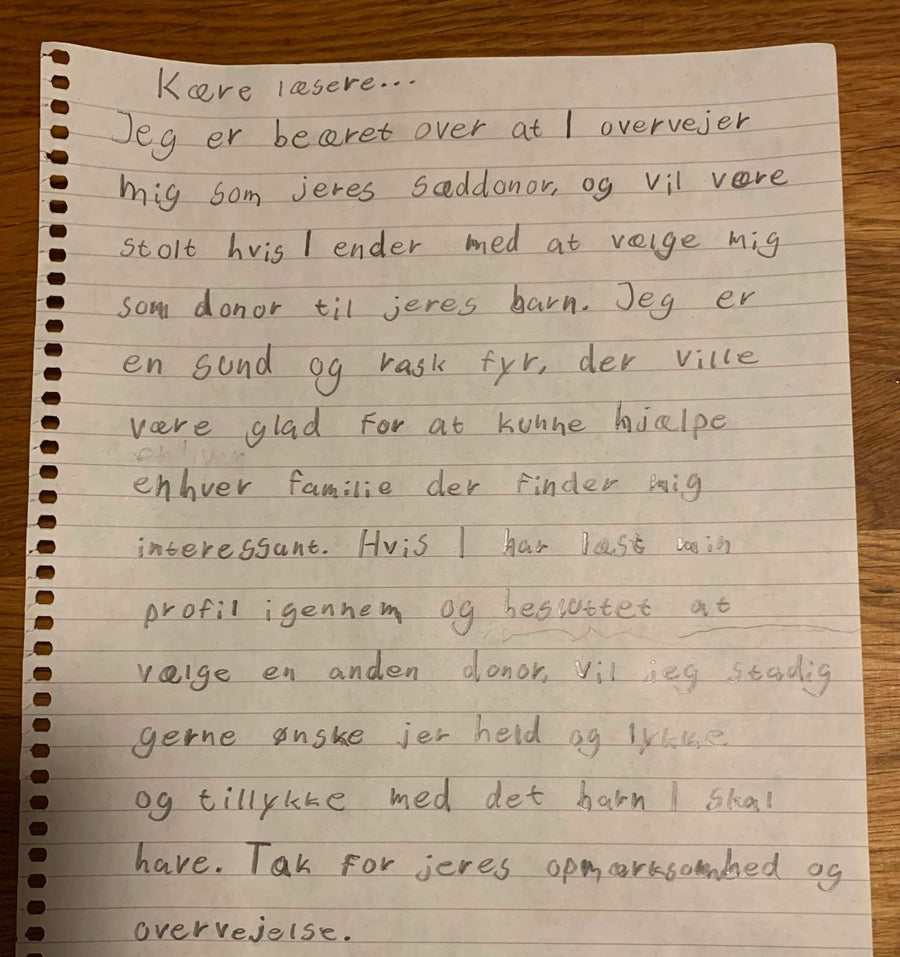 Kære læsere...
Jeg er beæret over at I overvejer
mig som jeres sæddonor, og vil være
stolt hvis I ender med at vælge mig
som donor til jeres barn. Jeg er
en sund og rask fyr, der ville
være glad for at kunne hjælpe
enhver familie der finder mig
interessant. Hvis I har læst min
profil igennem og besluttet at
vælge en anden donor, vil jeg stadig
gerne ønske jer held og lykke
og tillykke med det barn I skal
have. Tak for jeres opmærksomhed og
overvejelse.